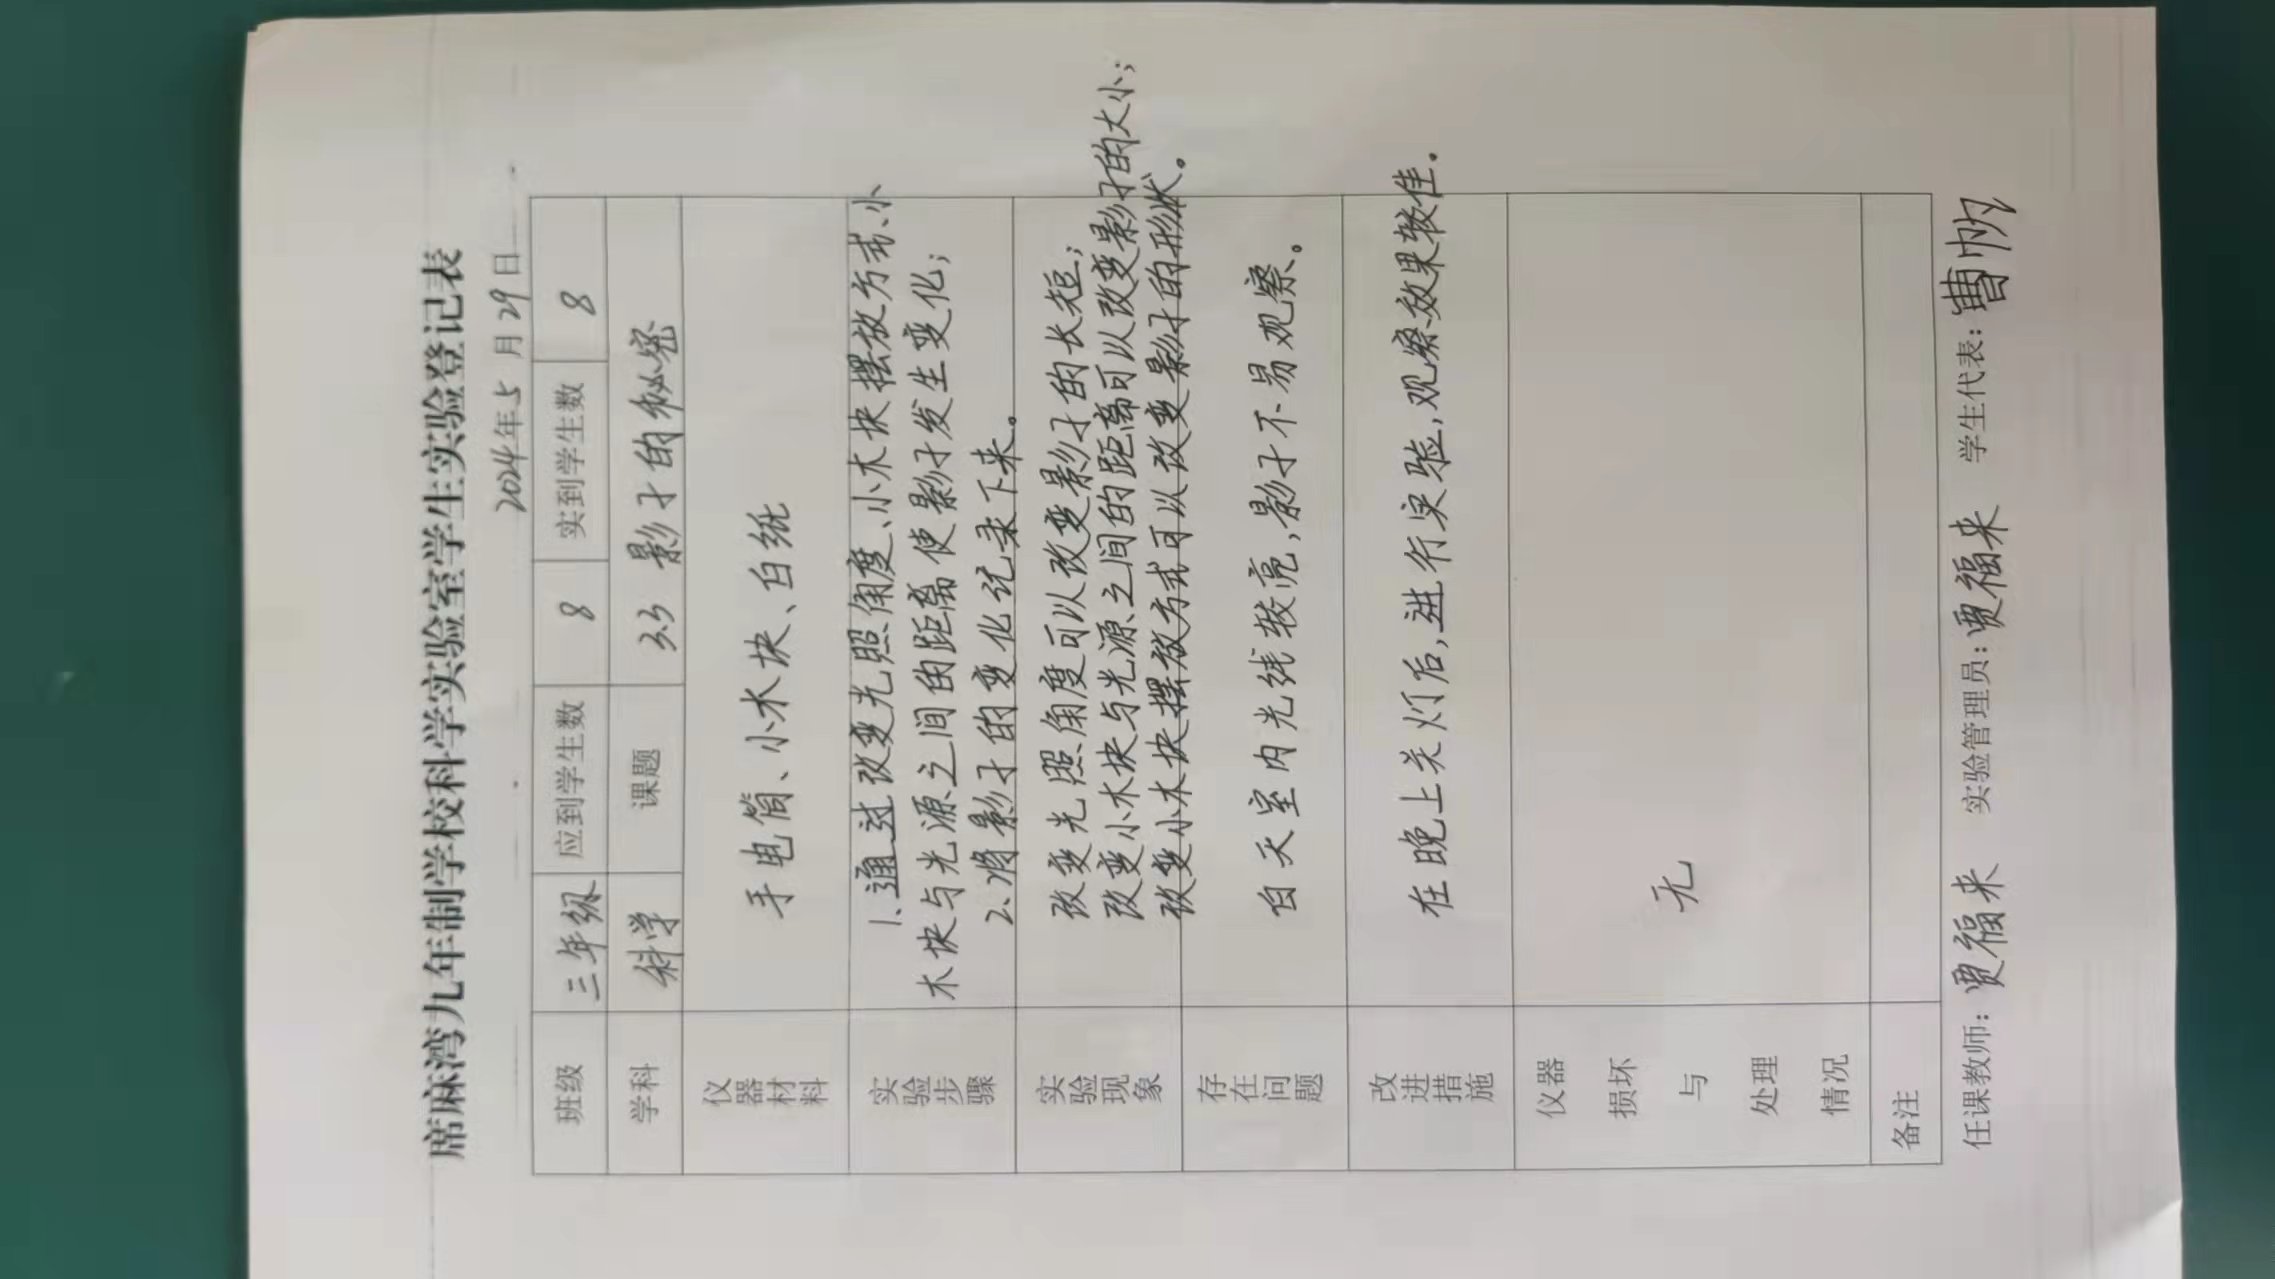 席麻湾九年制学校科学实验室学生实验登记表
2024年5月29日
班级 三年级 应到学生数 8 实到学生数 8
学科 科学 课题 3.3 影子的秘密
仪器材料 手电筒、小木块、白纸
实验步骤
1.通过改变光照角度、小木块摆放方式、小
木块与光源之间的距离使影子发生变化;
2.将影子的变化记录下来。
实验现象
改变光照角度可以改变影子的长短;
改变小木块与光源之间的距离可以改变影子的大小;
改变小木块摆放方式可以改变影子的形状。
存在问题 白天室内光线较亮,影子不易观察。
改进措施 在晚上关灯后,进行实验,观察效果较佳.
仪器
损坏
与
处理
情况
无
备注
任课教师: 贾福来 实验管理员: 贾福来 学生代表: 曹帆